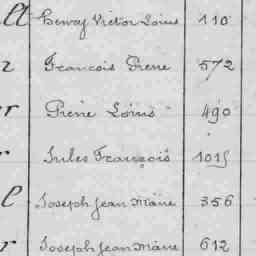 ll Henry Victor Louis 110
n François Pierre 572
r Pierre Louis 490
r Jules François 1015
l Joseph Jean Marie 356
r Joseph Jean Marie 612